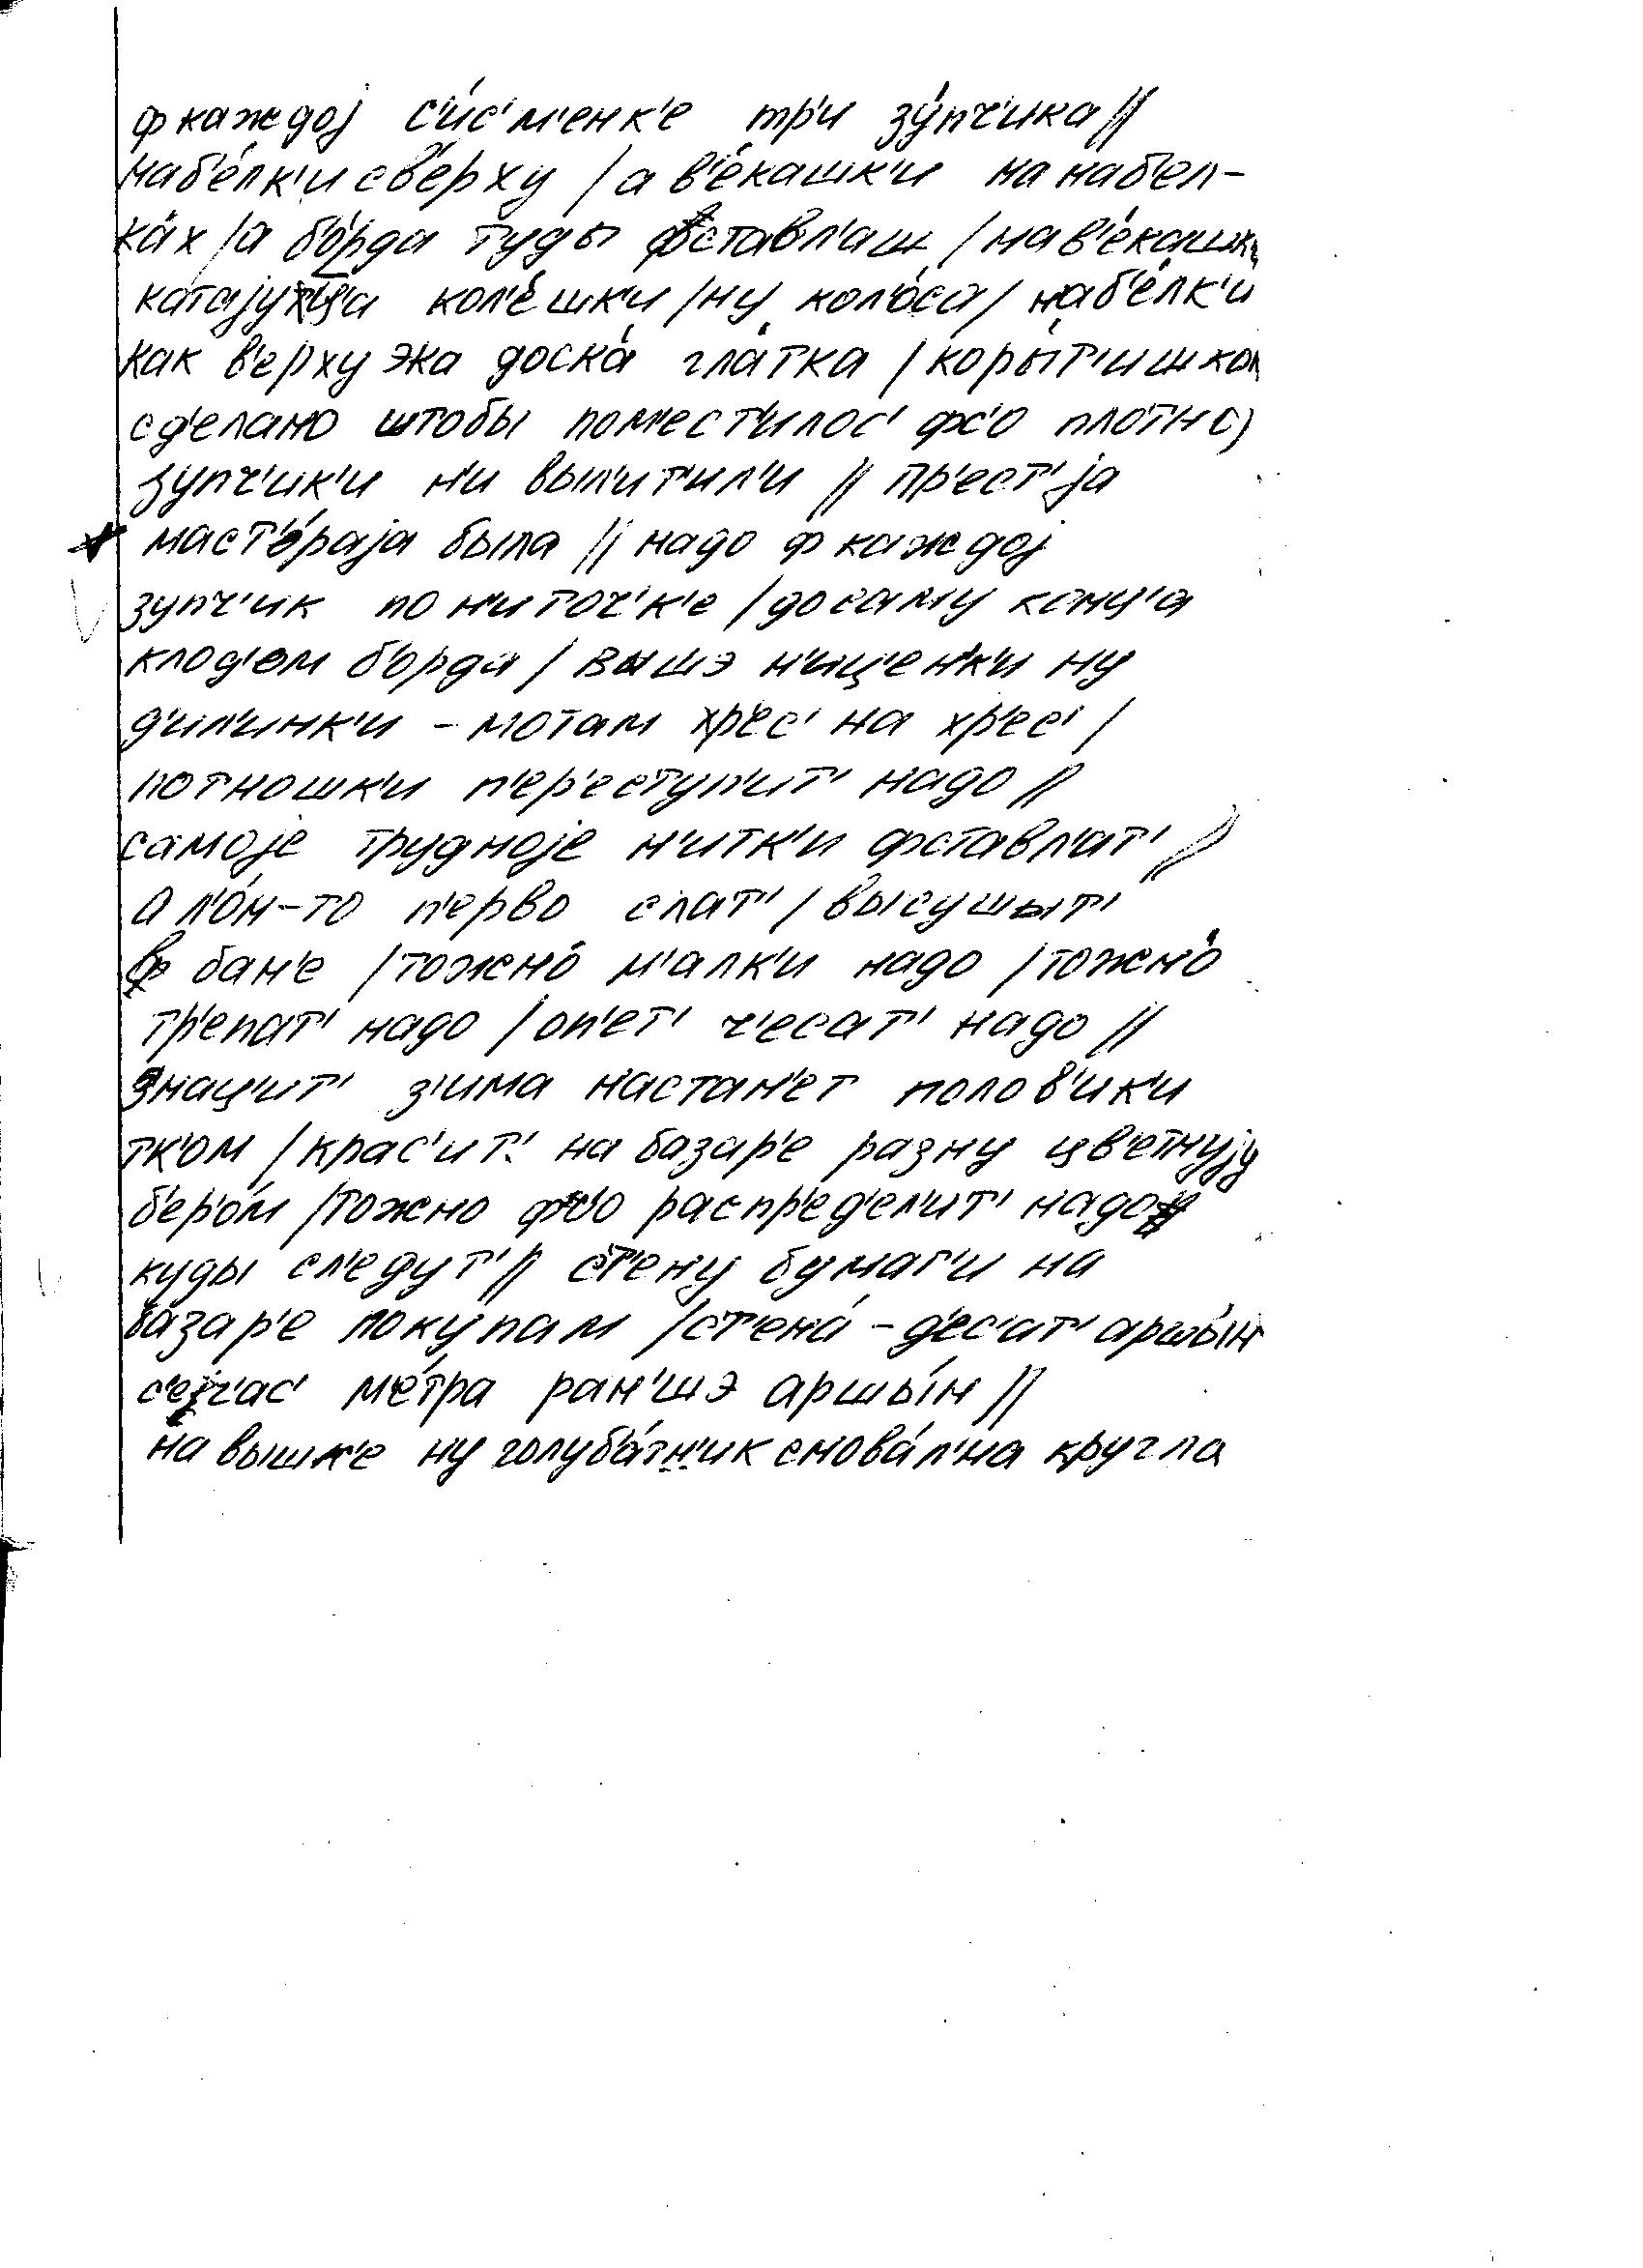 ф каждој с'и́с'м'енк'е тр'и зу́пч'ика //
наб'е́лк'и св'е́рху / а в'е́кашк'и на наб'ел-
ка́х / а б'о́рда туды фставл'аш / на в'е́кашк'и
катајуцца кол'е́шк'и / ну кол'о́са / наб'е́лк'и
как в'ерху эка доска́ гла́тка / коры́т'ишком
сд'елано штобы пом'ест'илос' фс'о плотно)
зупч'ик'и н'и выл'ит'ил'и // пр'ест'ја
маст'о́раја была // надо ф каждој
зупч'ик по н'иточ'к'е / до саму конц'а
клод'ом б'орда / вышэ н'иц'енк'и ну
д'ил'инк'и – мотам хр'ес' на хр'ес' /
потношк'и п'ер'еступ'ит' надо //
самоје трудноје н'итк'и фставл'ат' //
а л'о́н-то п'ерво слат' / высушыт'
в бан'е / тожно́ м'алк'и надо / тожно́
тр'епат' надо / оп'ет' ч'есат' надо //
знац'ит' з'има настан'ет полов'ик'и
тк'ом / крас'ит' на базар'е разну цв'етнују
б'ер'о́м / тожно фс'о распр'ед'ел'ит' надо
куды сл'едут' // ст'ену бумаг'и на
база́р'е покупам / ст'ена́ – д'ес'ат' аршы́н
с'ејч'ас' м'е́тра ран'шэ аршы́н //
на вышк'е ну голуб'а́тн'ик снова́л'на кругла